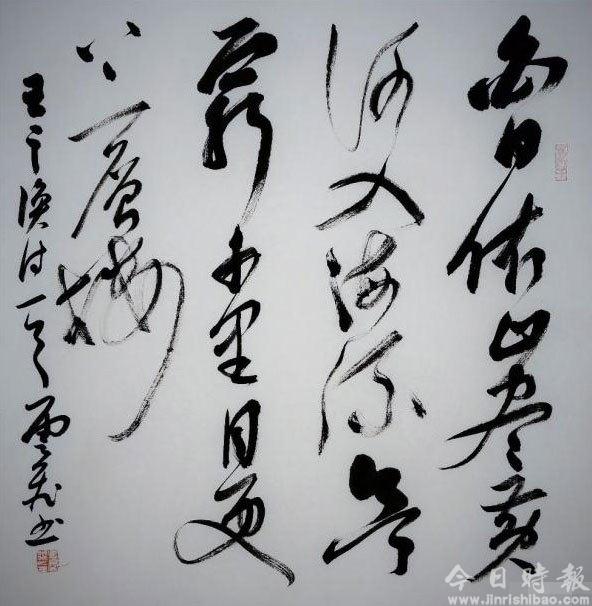 白日依山尽黄
河入海流欲
窮千里目更
上一層楼
王之涣诗一首 雲书
今日時報
www.jinrishibao.com